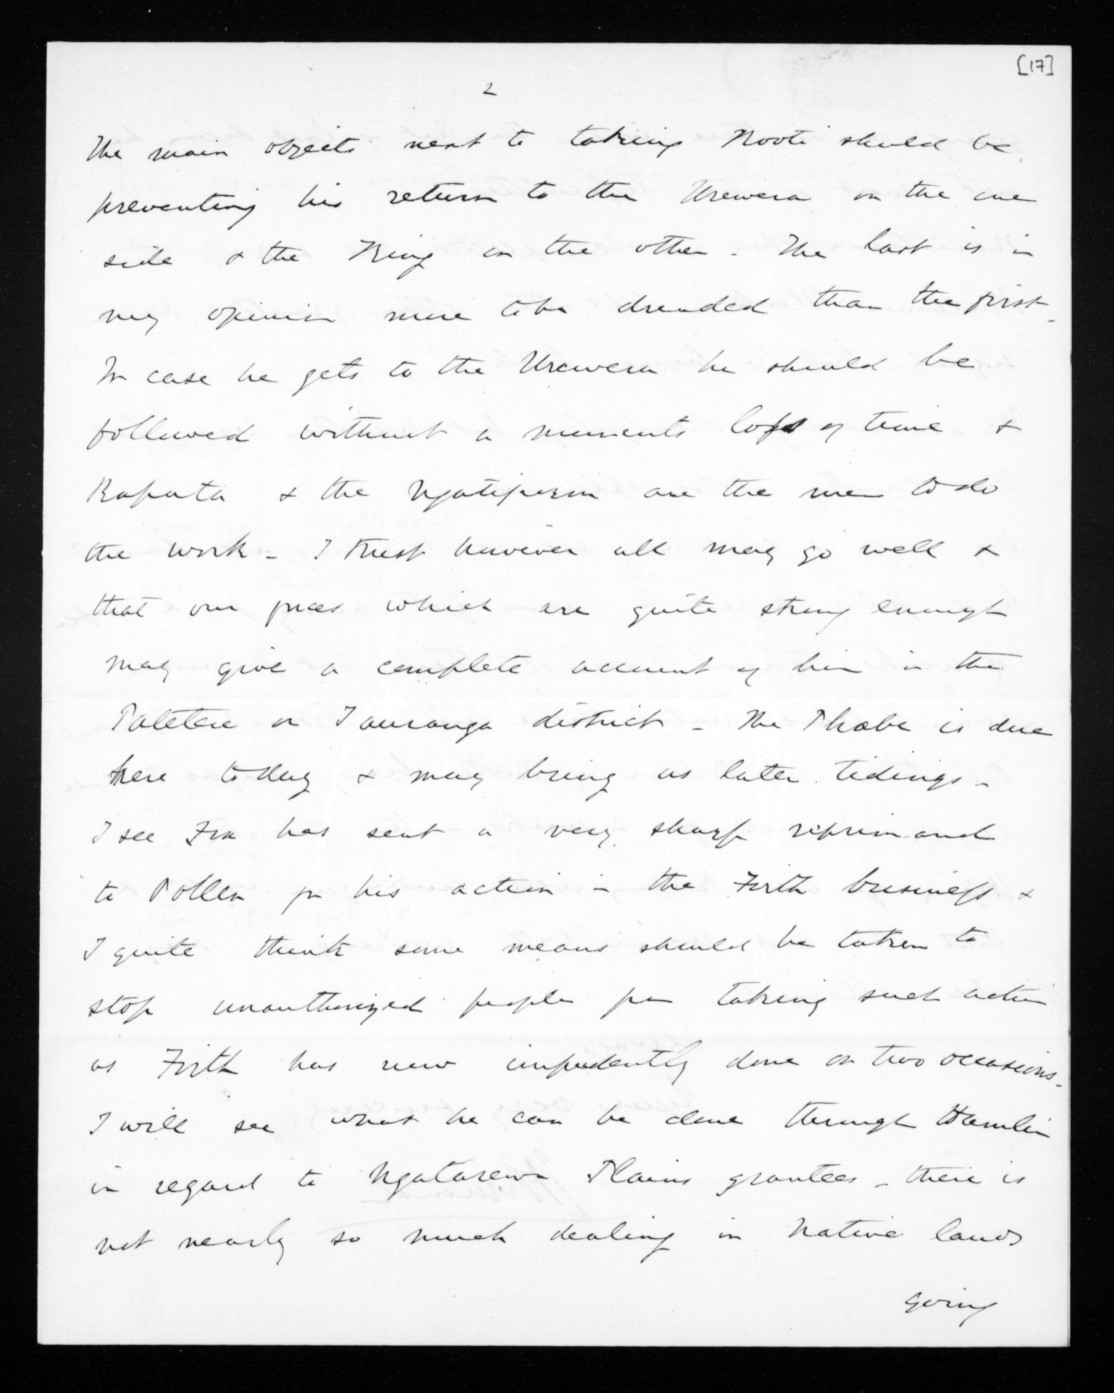 [17]
2
The main objects next to taking Kooti should be
preventing his return to the Urewera on the one
side & the King on the other - The last is in
my opinion more to be dreaded than the first -
In case he gets to the Urewera he should be
followed without a moments loss of time &
Ropata & the Ngatiporou are the men to do
the work - I trust however all may go well &
that our forces which are quite strong enough
may give a complete account of him in the
Patetere or Tauranga district - The Phoebe is due
here today & may bring us later tidings -
I see Fox has sent a very sharp reprimand
to Pollen for his action in the Firth business &
I quite think some means should be taken to
stop unauthorized people for taking such action
as Firth has now impudently done on two occasions -
I will see what he can be done through Hamlin
in regard to Ngatarawa Plains grantees - there is
not nearly so much dealing in Native lands
going